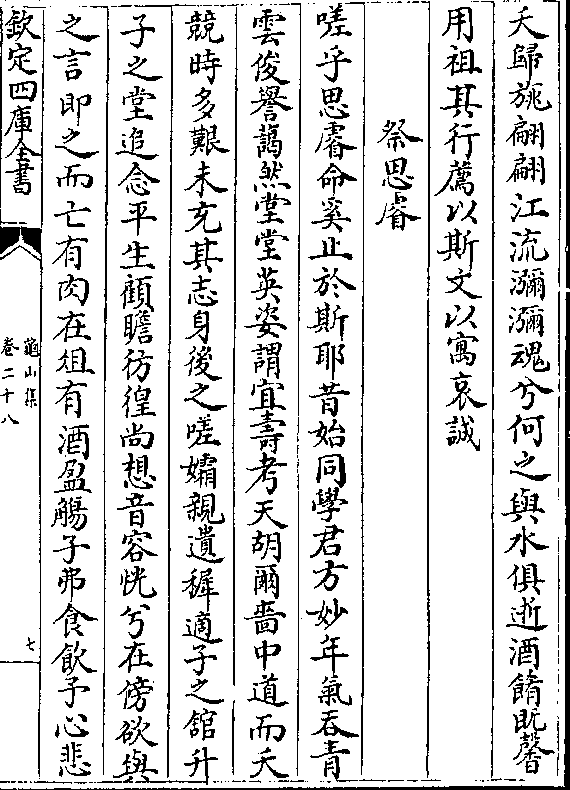 夭歸旐翩翩江流瀰瀰魂兮何之與水俱逝酒餚旣馨
用祖其行薦以斯文以寓哀誠
祭思睿
嗟乎思睿命奚止於斯耶昔始同學君方妙年氣吞青
雲俊譽藹然堂堂英姿謂宜壽考天胡爾嗇中道而夭
競時多艱未充其志身後之嗟孀親遺穉適子之舘升
子之堂追念平生顧瞻彷徨尚想音容恍兮在傍欲與
之言即之而亡有肉在俎有酒盈觴子弗食飲予心悲
欽定四庫全書
龜山集
卷二十八
七